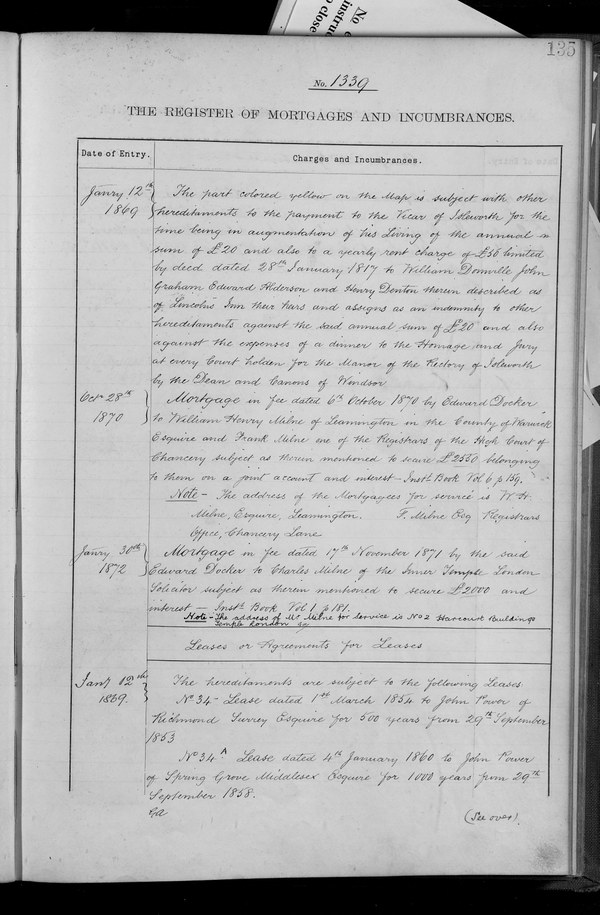 No
instru
o close
135
No. 1339
THE REGISTER OF MORTGAGES AND INCUMBRANCES.
Date of Entry.
Charges and Incumbrances.
Janry 12th
1869
The part colored yellow on the Map is subject with other
hereditaments to the payment to the Vicar of Isleworth for the
time being in augmentation of his Living of the annual
sum of £20 and also to a yearly rent charge of £56 limited
by deed dated 28th January 1817 to William Domville John
Graham Edward Alderson and Henry Denton therein described as
of Lincoln's Inn their heirs and assigns as an indemnity to other
hereditaments against the said annual sum of £20 and also
against the expenses of a dinner to the Homage and Jury
at every Court holden for the Manor of the Rectory of Isleworth
by the Dean and Canons of Windsor
Octr 28th
1870
Mortgage in fee dated 6th October 1870 by Edward Docker
to William Henry Milne of Leamington in the County of Warwick
Esquire and Frank Milne one of the Registrars of the High Court of
Chancery subject as therein mentioned to secure £2550 belonging
to them on a joint account and interest - Instt Book Vol 6 p 159.
Note - The address of the Mortgagees for service is W. H.
Milne, Esquire, Leamington. F. Milne Esq Registrars
Office, Chancery Lane
Janry 30th
1872
Mortgage in fee dated 17th November 1871 by the said
Edward Docker to Charles Milne of the Inner Temple London
Solicitor subject as therein mentioned to secure £2000 and
interest - Instt Book Vol 1 p 181.
Note - The address of Mr Milne for Service is No 2 Harcourt Buildings
Temple London
Leases or Agreements for Leases
Jany 12th
1869.
The hereditaments are subject to the following Leases
No 34 - Lease dated 1st March 1854 to John Power of
Richmond Surrey Esquire for 500 years from 29th September
1853
No 34A Lease dated 4th January 1860 to John Power
of Spring Grove Middlesex Esquire for 1000 years from 29th
September 1858.
(See over).